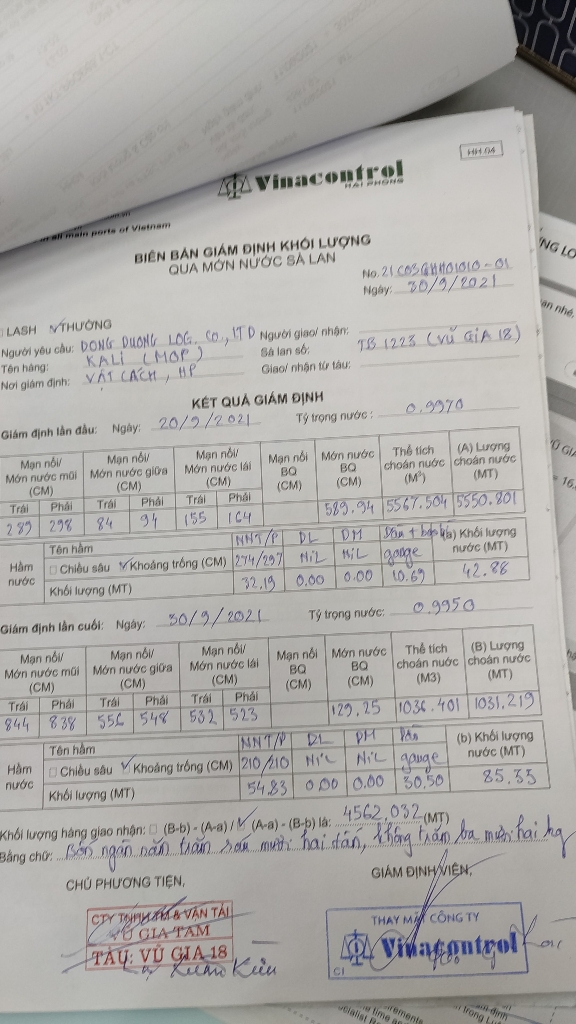 HH.04
Vinacontrol
HAI PHONG
in all main ports of Vietnam
BIÊN BẢN GIÁM ĐỊNH KHỐI LƯỢNG
QUA MỚN NƯỚC SÀ LAN
No. 21C03GHH01010-01
Ngày: 30/9/2021
LASH THƯỜNG
Người yêu cầu: DONG DUONG LOG. CO., LTD Người giao/ nhận:
Tên hàng: KALI (MOP) Sà lan số: TB 1223 (VŨ GIA 18)
Nơi giám định: VẬT CÁCH, HP Giao/ nhận từ tàu:
KẾT QUẢ GIÁM ĐỊNH
Giám định lần đầu: Ngày: 20/9/2021 Tỷ trọng nước: 0.9970
Mạn nổi/ Mớn nước mũi (CM) Mạn nổi/ Mớn nước giữa (CM) Mạn nổi/ Mớn nước lái (CM) Mạn nổi BQ (CM) Mớn nước BQ (CM) Thể tích choán nước (M³) (A) Lượng choán nước (MT)
Trái Phải Trái Phải Trái Phải
289 298 84 94 155 164 589.94 5567.504 5550.801
Hầm nước Tên hầm NNT/P DL DM (a) Khối lượng nước (MT)
Chiều sâu Khoảng trống (CM) 274/297 NiL NiL gauge
Khối lượng (MT) 32.19 0.00 0.00 10.69 42.88
Giám định lần cuối: Ngày: 30/9/2021 Tỷ trọng nước: 0.9950
Mạn nổi/ Mớn nước mũi (CM) Mạn nổi/ Mớn nước giữa (CM) Mạn nổi/ Mớn nước lái (CM) Mạn nổi BQ (CM) Mớn nước BQ (CM) Thể tích choán nước (M3) (B) Lượng choán nước (MT)
Trái Phải Trái Phải Trái Phải
844 838 556 548 532 523 129.25 1036.401 1031.219
Hầm nước Tên hầm NNT/P DL DM (b) Khối lượng nước (MT)
Chiều sâu Khoảng trống (CM) 210/210 NiL NiL gauge
Khối lượng (MT) 54.83 0.00 0.00 30.50 85.33
Khối lượng hàng giao nhận: (B-b) - (A-a) / (A-a) - (B-b) là: 4562.032 (MT)
Bằng chữ: Bốn ngàn năm trăm sáu mươi hai tấn, không trăm ba mươi hai kg
CHỦ PHƯƠNG TIỆN, GIÁM ĐỊNH VIÊN,
CTY TNHH TM & VẬN TẢI
VŨ GIA TAM
TÀU: VŨ GIA 18
THAY MẶT CÔNG TY
Vinacontrol
CI